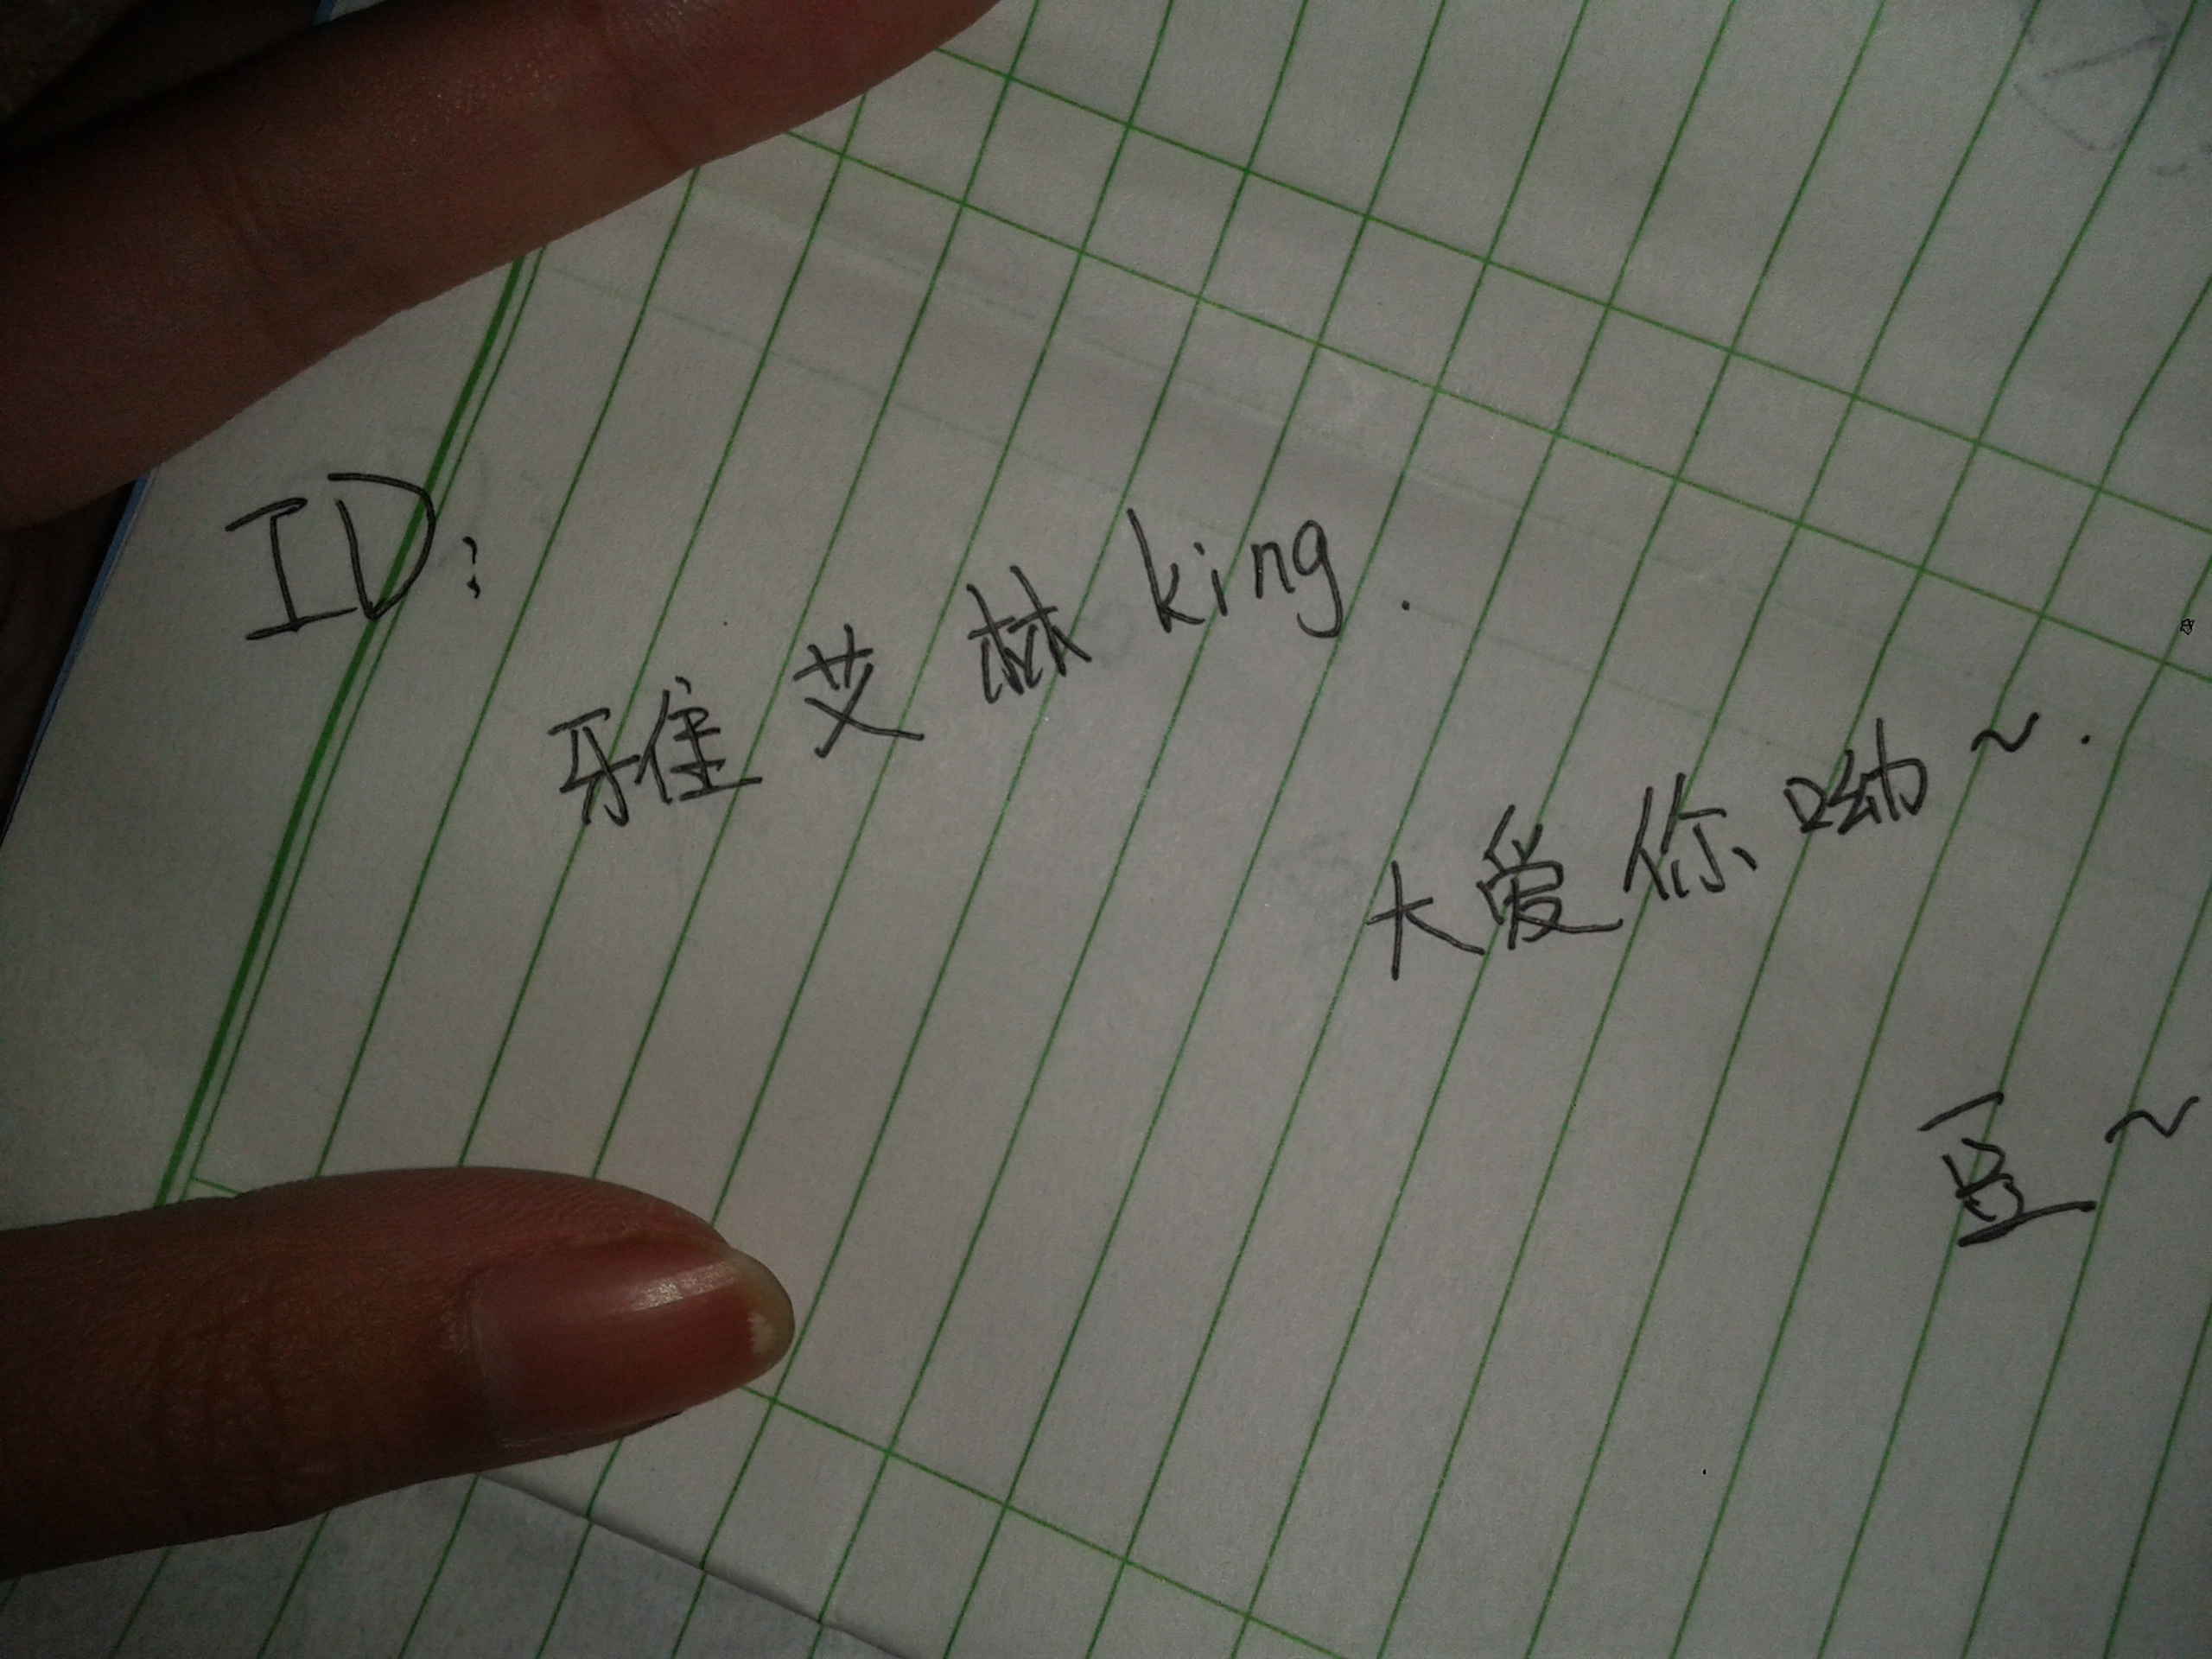 ID:
雅艾林king.
大爱你呦~.
豆~